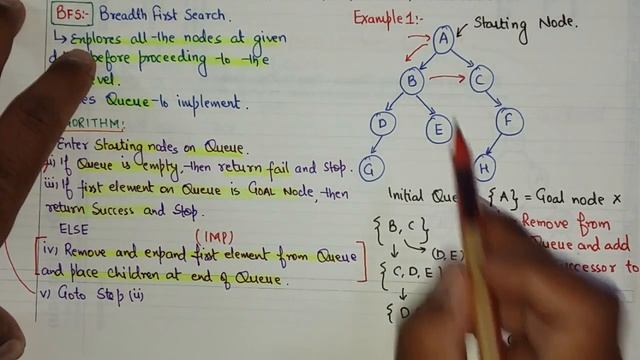 BFS:- Breadth First Search.
↳ Explores all the nodes at given
before proceeding to the
level.
Queue to implement.
ALGORITHM:
Enter Starting nodes on Queue.
ii) If Queue is empty, then return fail and Stop.
iii) If first element on Queue is GOAL Node, then
return Success and Stop.
ELSE
(IMP)
iv) Remove and expand first element from Queue
and place children at end of Queue.
v) Goto Step (ii)
Example 1:-
Starting Node.
A
B
C
D
E
F
G
H
Initial Queue {A} = Goal node ×
{B, C}
(D, E)
{C, D, E}
{D
Remove from
Queue and add
successor to